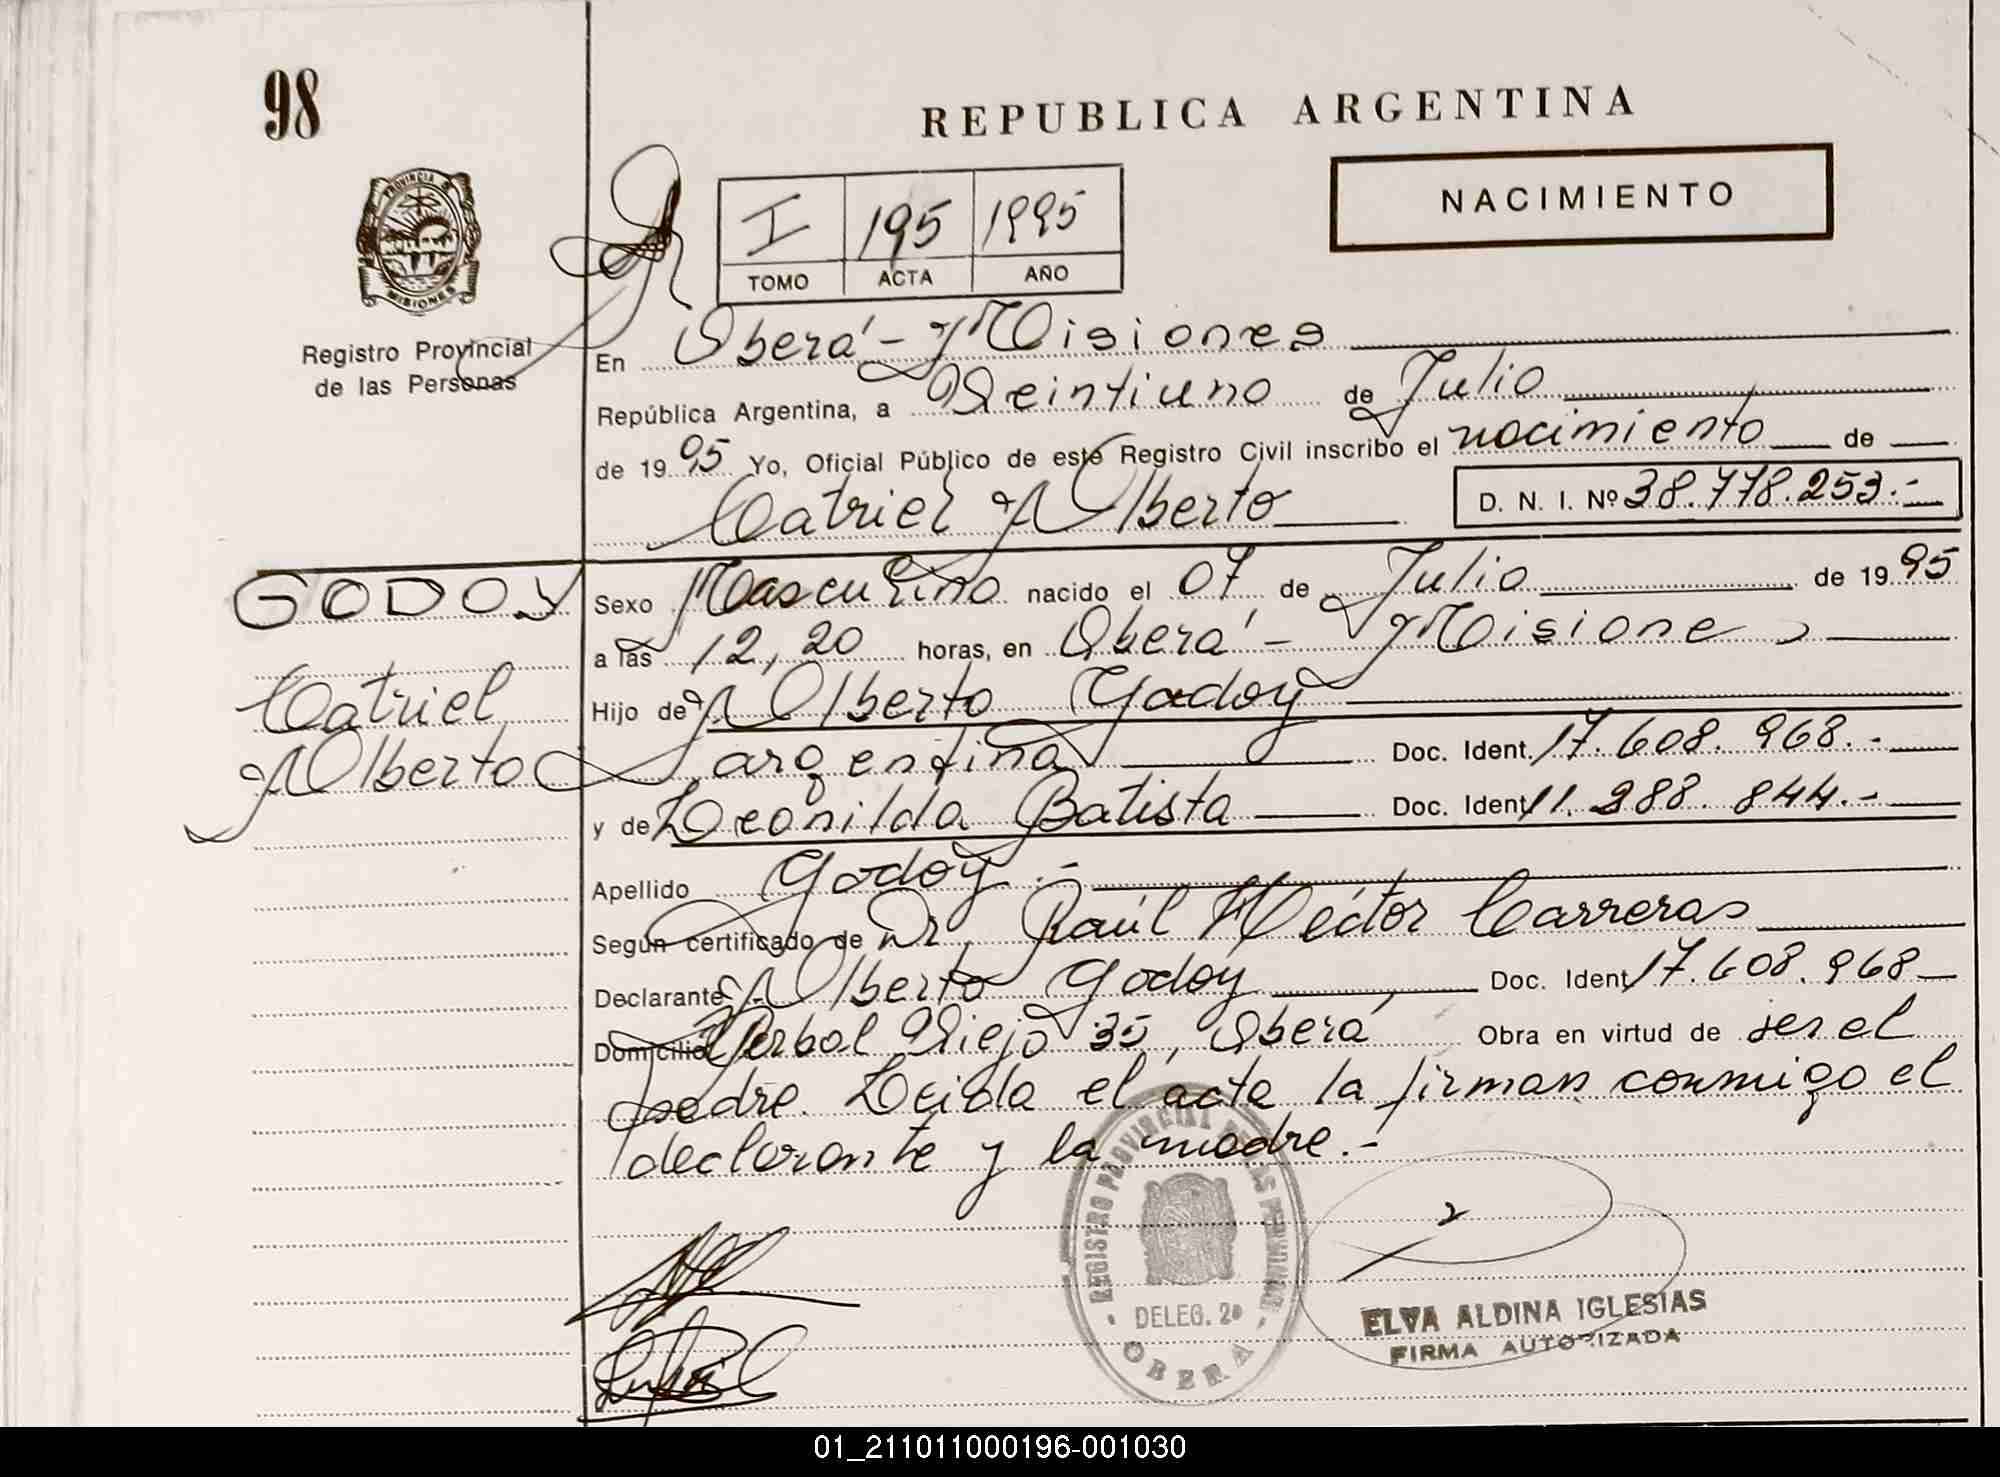 98
REPUBLICA ARGENTINA
NACIMIENTO
PROVINCIA DE
MISIONES
Registro Provincial
de las Personas
I 195 1995
TOMO ACTA AÑO
En Oberá - Misiones
República Argentina, a Veintiuno de Julio
de 1995 Yo, Oficial Público de este Registro Civil inscribo el nacimiento de
Catriel Alberto D. N. I. Nº 38.778.253.-
GODOY
Catriel
Alberto
Sexo Masculino nacido el 07 de Julio de 1995
a las 12,20 horas, en Oberá - Misiones
Hijo de Alberto Godoy
argentina Doc. Ident. 17.608.968.-
y de Leonilda Batista Doc. Ident 11.288.844.-
Apellido Godoy.-
Según certificado de Dr. Raúl Héctor Carreras
Declarante Alberto Godoy Doc. Ident 17.608.968-
Domicilio Yerbal Viejo 35, Oberá Obra en virtud de ser el
padre. Leida el acta la firman conmigo el
declarante y la madre.-
REGISTRO PROVINCIAL DE LAS PERSONAS
DELEG. 2º
OBERA
ELVA ALDINA IGLESIAS
FIRMA AUTORIZADA
01_211011000196-001030